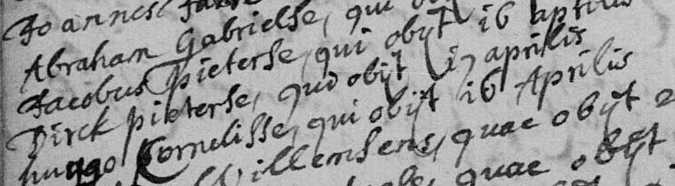 Joannes
Abraham Gabrielse, qui
Jacobus Pieterse, qui obijt 16 aprilis
Dirck pieterse, qui obijt 17 aprilis
hugo Cornelisse, qui obijt 16 Aprilis
Willemsens, quae obijt 2
quae obijt